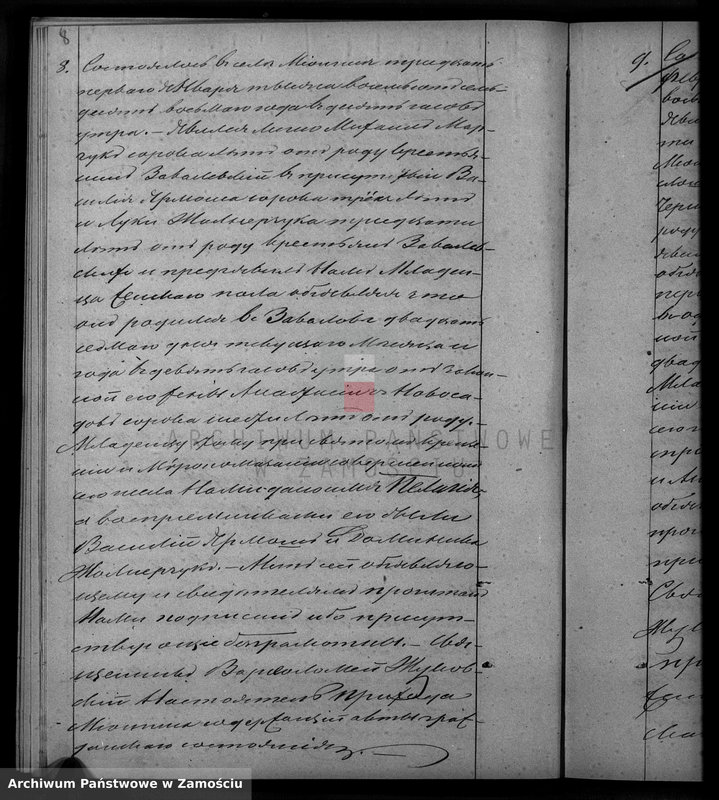 8
8. Состоялось в селе Мiончинѣ тридцать
перваго Января тысяча восемьсотъ семь-
десятъ восьмаго года въ десять часовъ
утра. — Явился лично Михаилъ Мар-
чукъ сорока лѣтъ отъ роду крестья-
нинъ Завалевскiй въ присутствiи Ва-
силiя Ярмоша сорока трехъ лѣтъ
и Луки Жолнерчука тридцати
лѣтъ отъ роду крестьянъ Завалев-
скихъ и предъявилъ Намъ Младен-
ца Женскаго пола объявляя что
онъ родился въ Заваловѣ двадцать
седьмаго дня текущаго Месяца и
года въ девять часовъ утра отъ закон-
ной его жены Анастасiи Новоса-
довъ сорока лѣтъ отъ роду.
Младенцу сему при святомъ Креще-
нiи и Мѵропомазанiи совершенномъ
сего числа Нами дано имя Пелагiя
а воспрiемниками его были
Василiй Ярмошъ и Доминика
Жолнерчукъ. — Актъ сей объявляю-
щему и свидѣтелямъ прочитанъ
Нами подписанъ ибо присут-
ствующiе безграмотны. — Свя-
щенникъ Варѳоломей
Настоятель прихода
Мiончинъ содержащiй акты граж-
данскаго состоянiя
9.
ARCHIWUM PAŃSTWOWE
W ZAMOŚCIU
Archiwum Państwowe w Zamościu